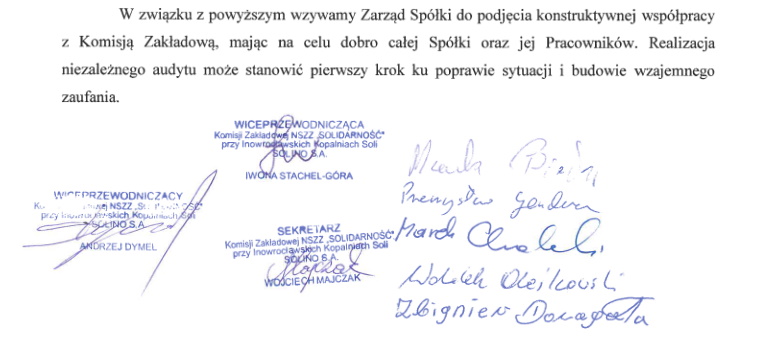 W związku z powyższym wzywamy Zarząd Spółki do podjęcia konstruktywnej współpracy
z Komisją Zakładową, mając na celu dobro całej Spółki oraz jej Pracowników. Realizacja
niezależnego audytu może stanowić pierwszy krok ku poprawie sytuacji i budowie wzajemnego
zaufania.
WICEPRZEWODNICZĄCA
Komisji Zakładowej NSZZ „SOLIDARNOŚĆ"
przy Inowrocławskich Kopalniach Soli
SOLINO S.A.
IWONA STACHEL-GÓRA
WICEPRZEWODNICZĄCY
NSZZ
przy Inowrocławskich Kopalniach Soli
SOLINO S.A.
ANDRZEJ DYMEL
SEKRETARZ
Komisji Zakładowej NSZZ „SOLIDARNOŚĆ"
przy Inowrocławskich Kopalniach Soli
SOLINO S.A.
Majczak
WOJCIECH MAJCZAK
Przemysław
Marek
Zbigniew